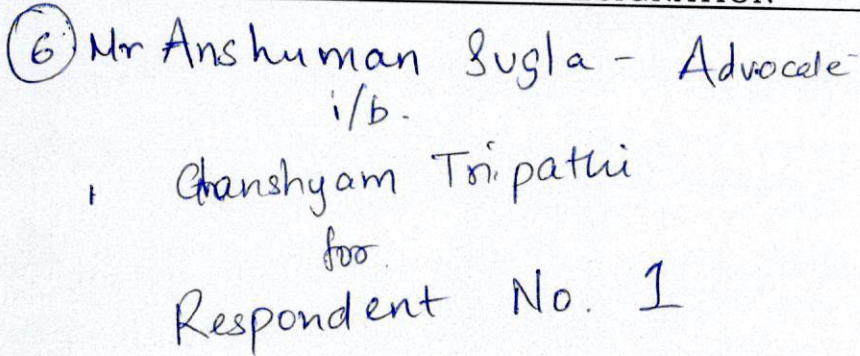 6 Mr Anshuman Sugla - Advocate
i/b.
Ghanshyam Tripathi
for
Respondent No. 1